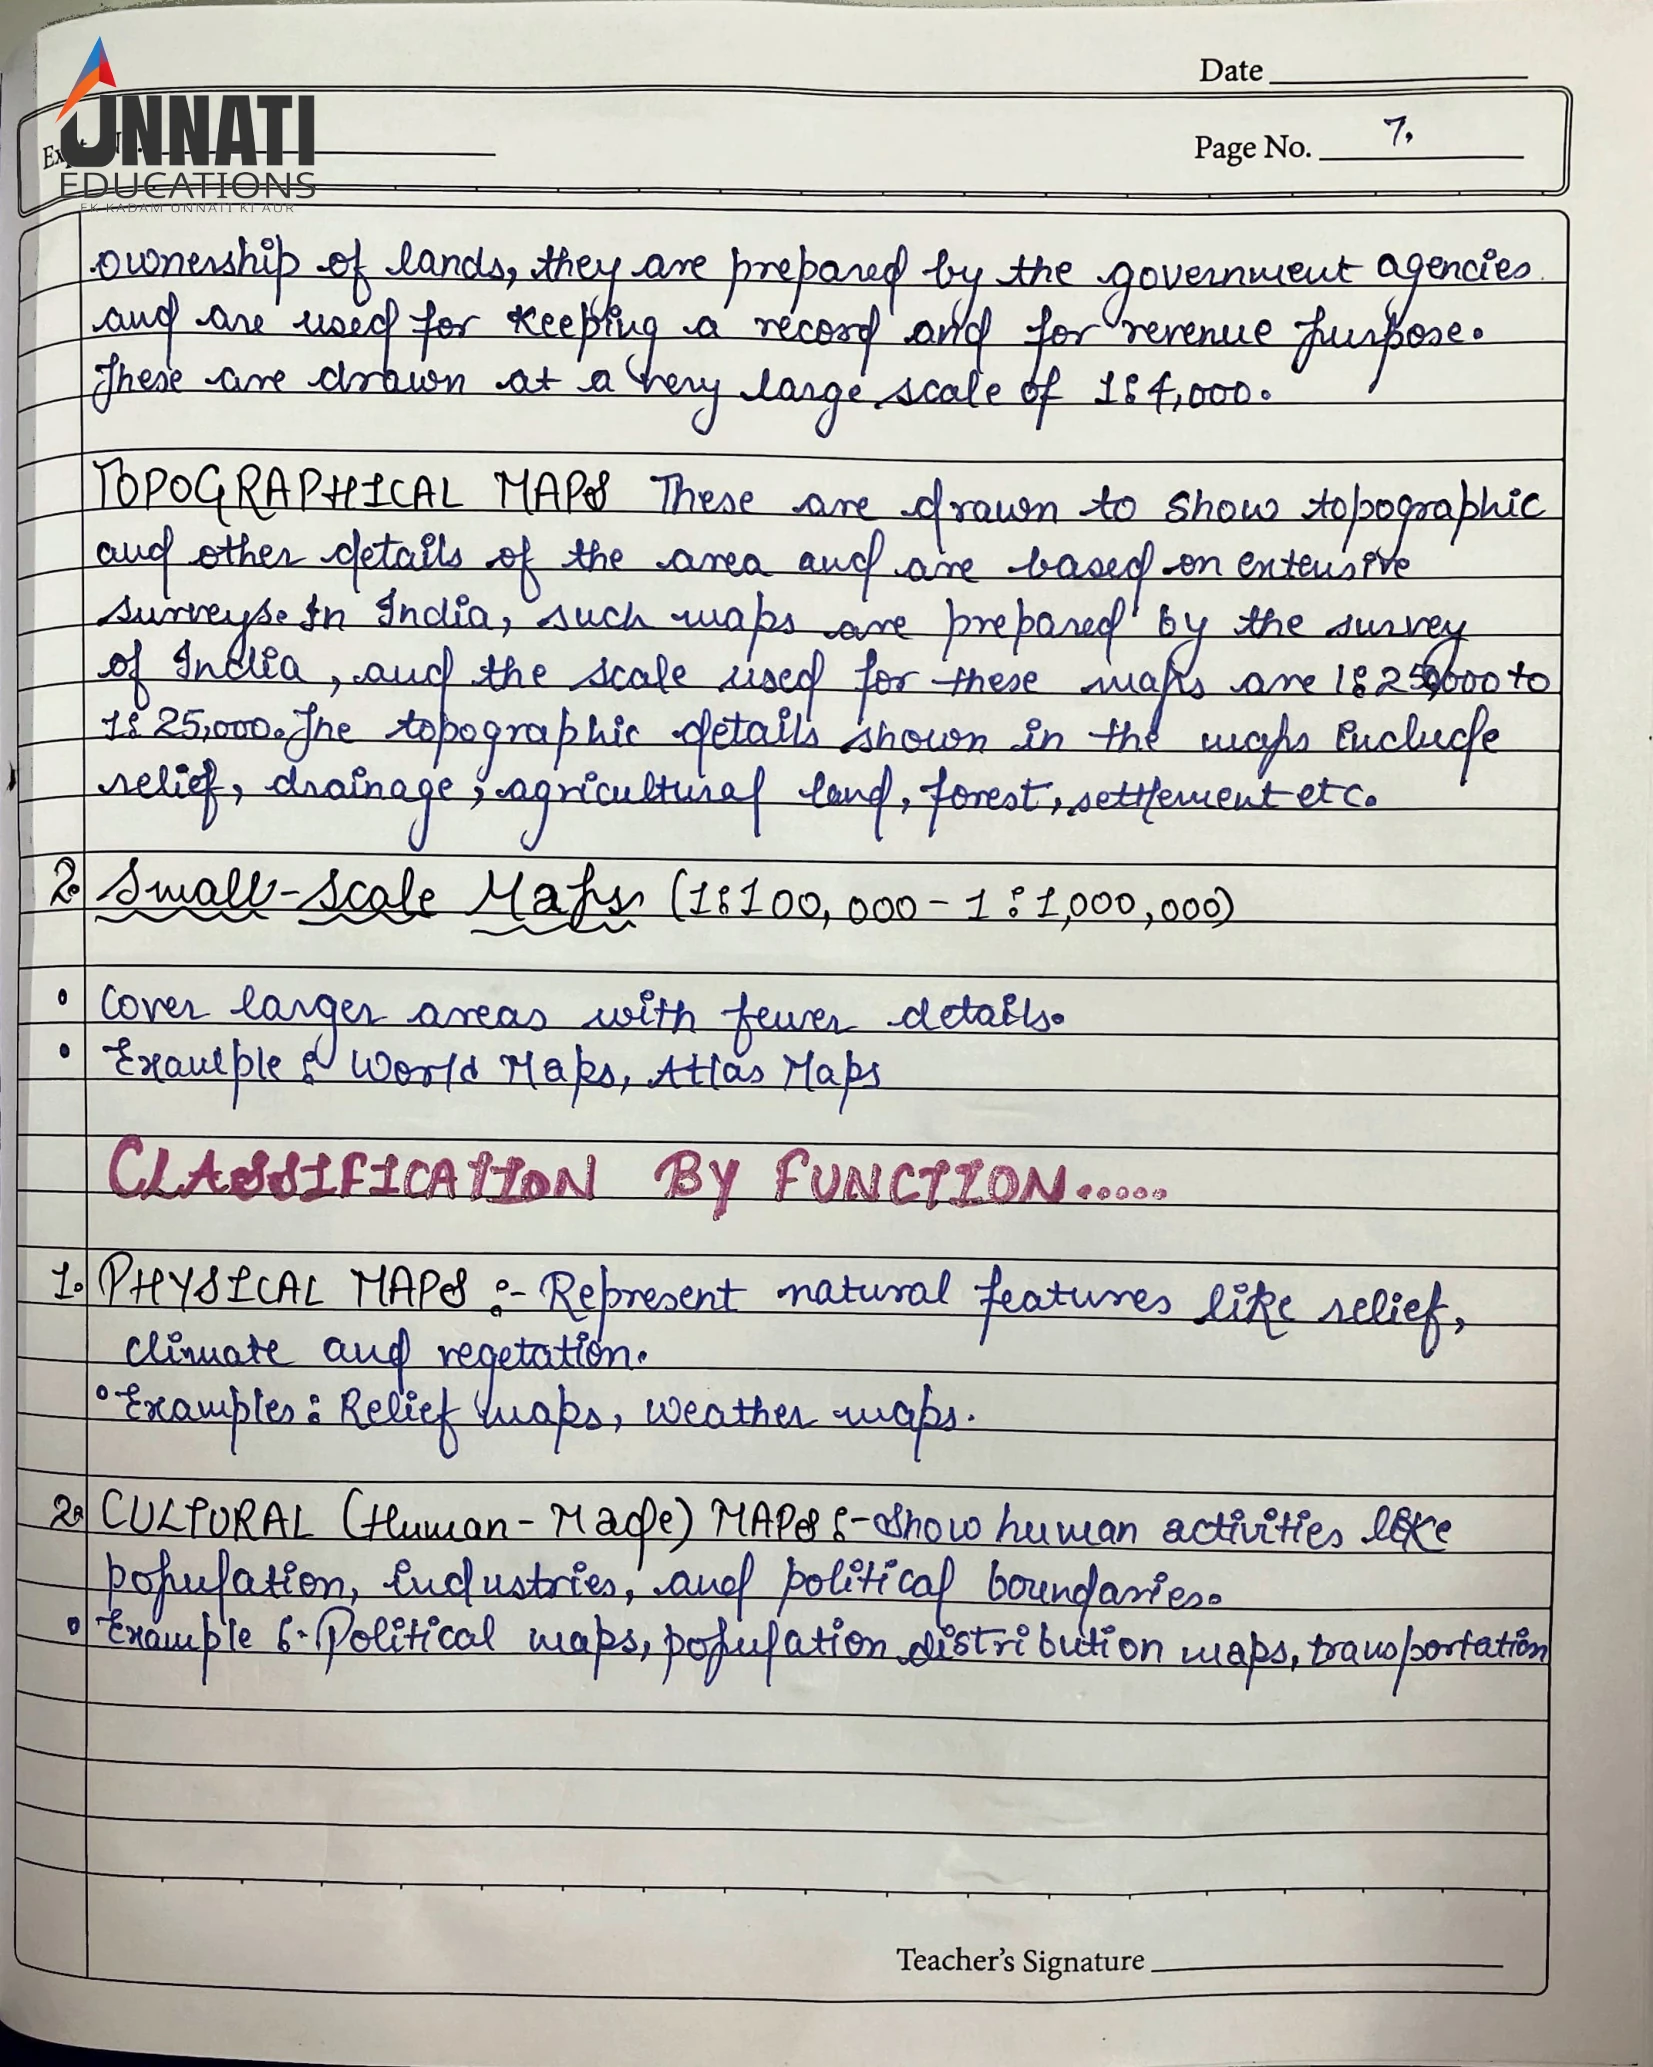 UNNATI
EDUCATIONS
EK KADAM UNNATI KI AUR
Date
Page No. 7.
ownership of lands, they are prepared by the government agencies
and are used for keeping a record and for revenue purpose.
These are drawn at a very large scale of 1:4,000.
TOPOGRAPHICAL MAPS These are drawn to show topographic
and other details of the area and are based on extensive
surveys. In India, such maps are prepared by the survey
of India, and the scale used for these maps are 1:250,000 to
1:25,000. The topographic details shown in the maps include
relief, drainage, agricultural land, forest, settlement etc.
2. Small-Scale Maps (1:100,000-1:1,000,000)
• Cover larger areas with fewer details.
• Example: World Maps, Atlas Maps
CLASSIFICATION BY FUNCTION.....
1. PHYSICAL MAPS :- Represent natural features like relief,
climate and vegetation.
• Examples: Relief maps, weather maps.
2. CULTURAL (Human-Made) MAPS :- Show human activities like
population, industries, and political boundaries.
• Example :- Political maps, population distribution maps, transportation
Teacher's Signature